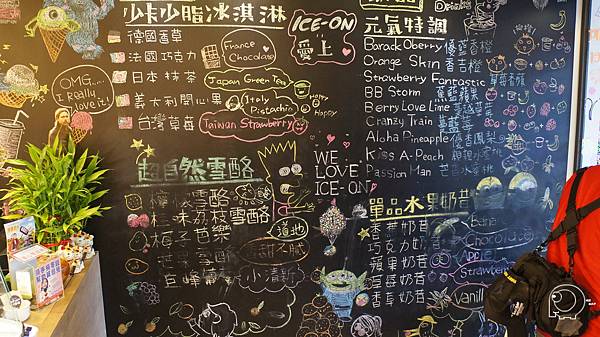 少卡少脂冰淇淋
德國香草
法國巧克力
France Chocolate
日本抹茶
Japan Green Tea
義大利開心果
Italy Pistachio
台灣草莓
Taiwan Strawberry
HAPPY
HAPPY
OMG....
I Really love it!
ICE-ON
愛上
WE LOVE ICE-ON
超自然雪酪
檸檬雪酪
荔枝雪酪
梅子芭樂
道地
甜不膩
小清新
元氣特調
Barack Oberry 優藍香橙
Orange Skin 香吉橙
Strawberry Fantastic
BB Storm
Berry Love Line
Cranzy Train
Aloha Pineapple 優香鳳梨
Kiss A-Peach
Passion Man
單品水果奶昔
香蕉奶昔
Bana
巧克力奶昔
Chocolate
蘋果奶昔
Apple
草莓奶昔
Strawberry
香草奶昔
Vanill